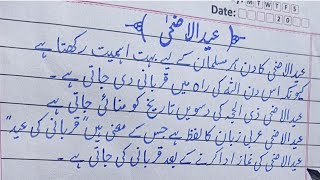 M T W T F S
Date: 20
﴿ عیدالاضحیٰ ﴾
عیدالاضحیٰ کا دن ہر مسلمان کے لیے بہت اہمیت رکھتا ہے
کیونکہ اس دن اللہ کی راہ میں قربانی دی جاتی ہے۔
عیدالاضحیٰ ذی الحجہ کی دسویں تاریخ کو منائی جاتی ہے
عیدالاضحیٰ عربی زبان کا لفظ ہے جس کے معنی ہیں "قربانی کی عید"
عیدالاضحیٰ کی نماز ادا کرنے کے بعد قربانی کی جاتی ہے۔